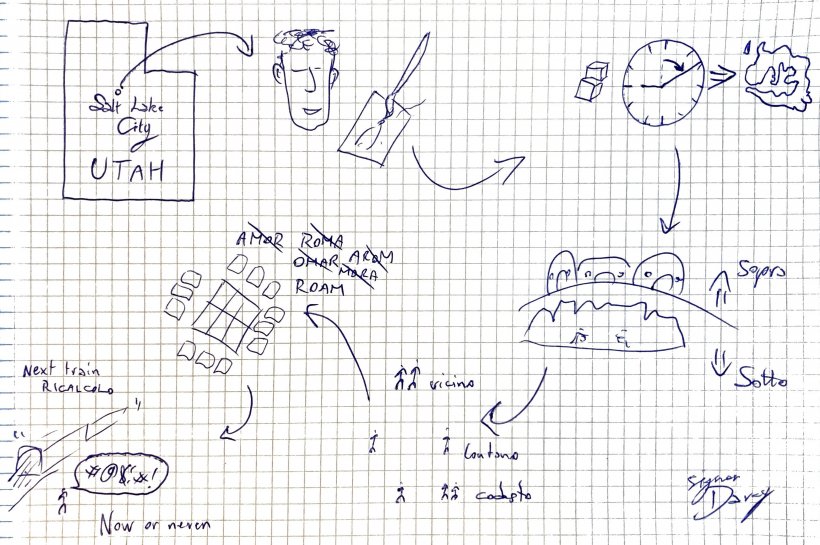 Salt Lake
City
UTAH
AMOR ROMA
OMAR AROM
MORA
ROAM
Sopra
Sotto
Next train
RICALCOLO
vicino
lontano
#@&*!
Now or never
signor
Davey